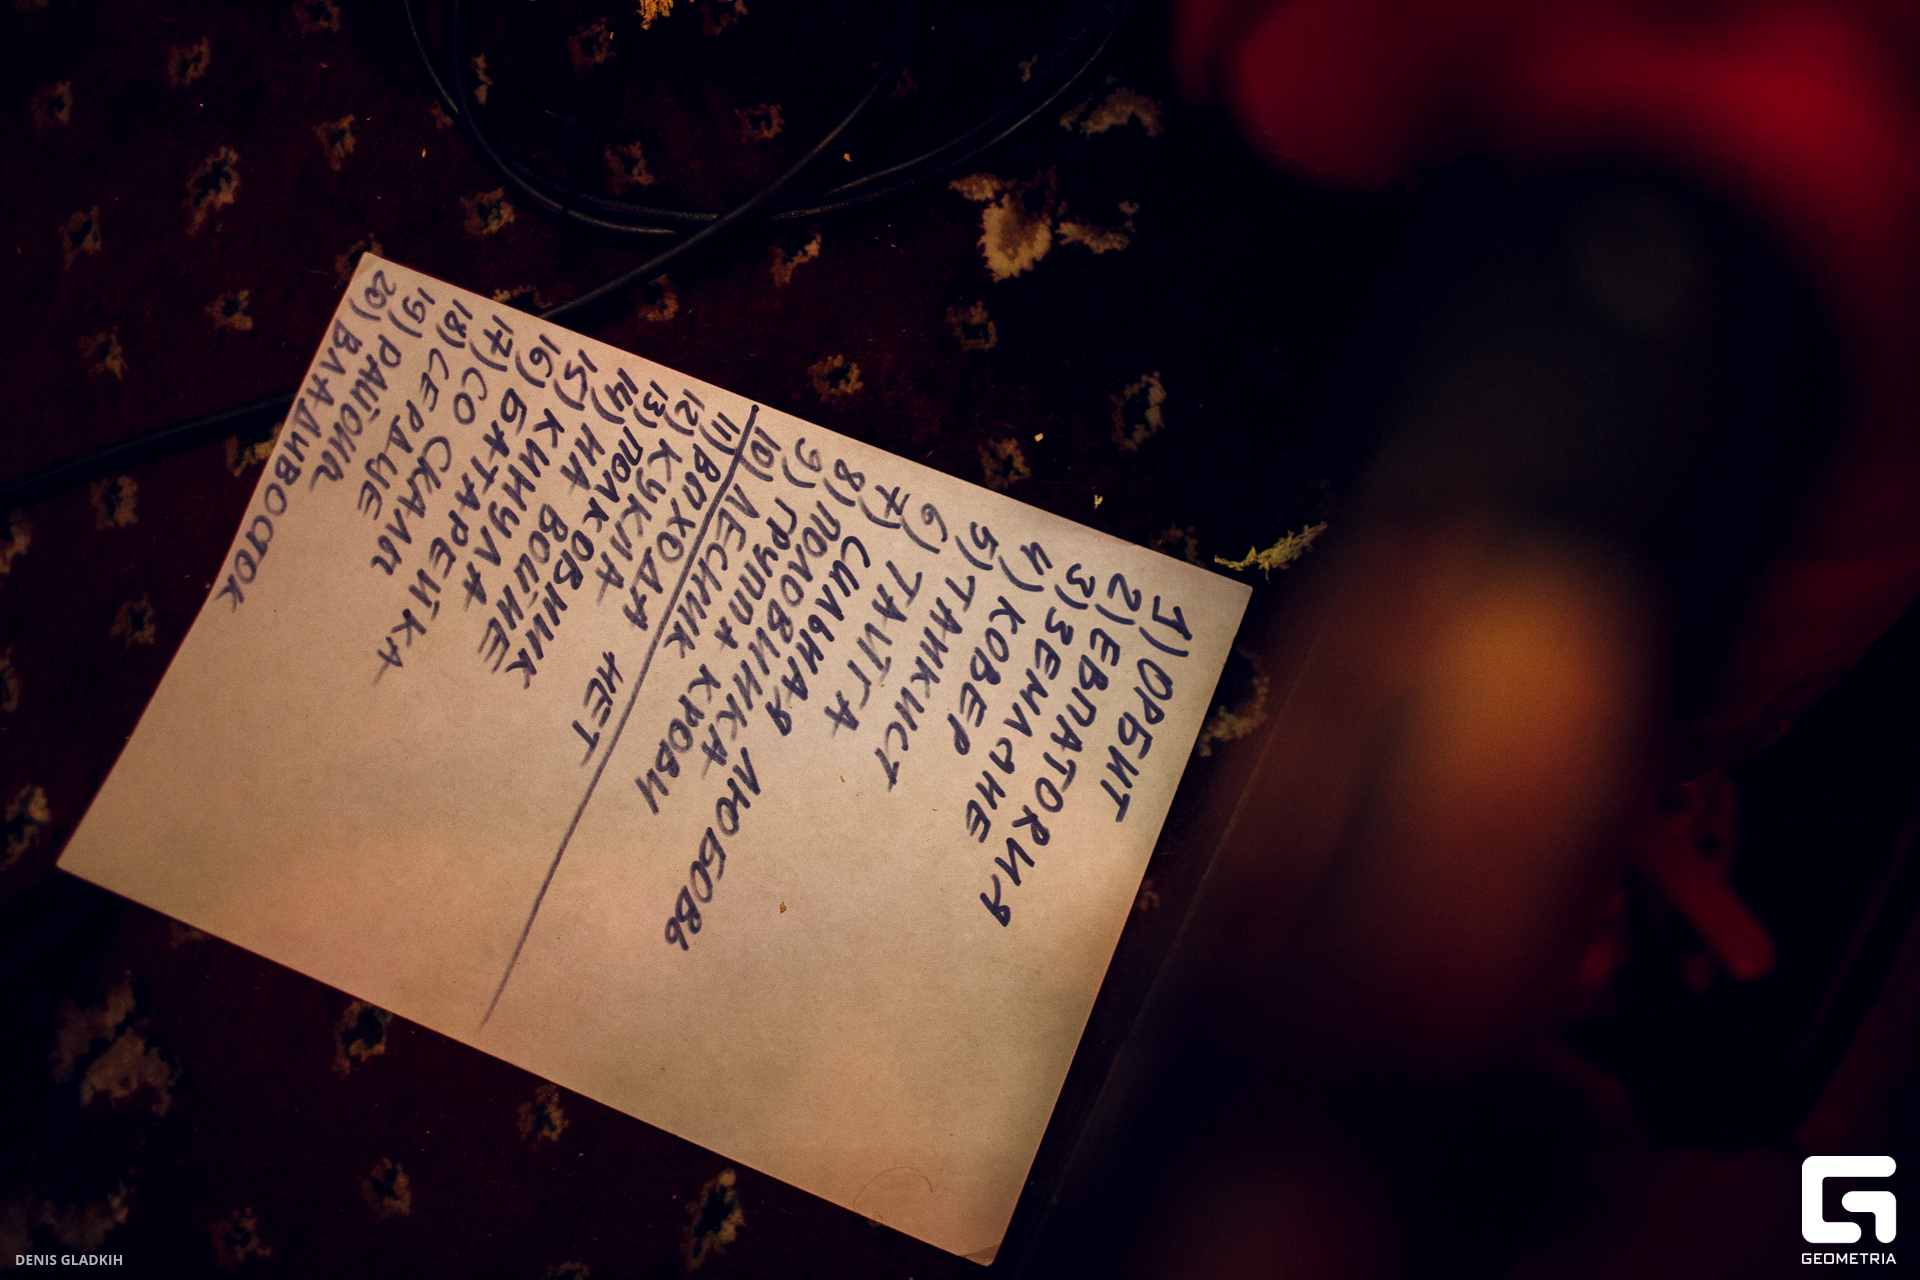 1) ОРБИТ
2) ЕВПАТОРИЯ
3) ЗЕМЛЯНЕ
4) КОВЕР
5) ТАНКИСТ
6) ТАЙГА
7) СИЛЬНАЯ
8) ПОЛОВИНКА ЛЮБОВЬ
9) ГРУППА КРОВИ
10) ЛЕСНИК
11) ВЫХОДА НЕТ
12) КУКЛА
13) ПОЛКОВНИК
14) НА ВОЙНЕ
15) КИНУЛА
16) БАТАРЕЙКА
17) СО СКАЛЫ
18) СЕРДЦЕ
19) РАЙОНЫ
20) ВЛАДИВОСТОК
DENIS GLADKIH
GEOMETRIA